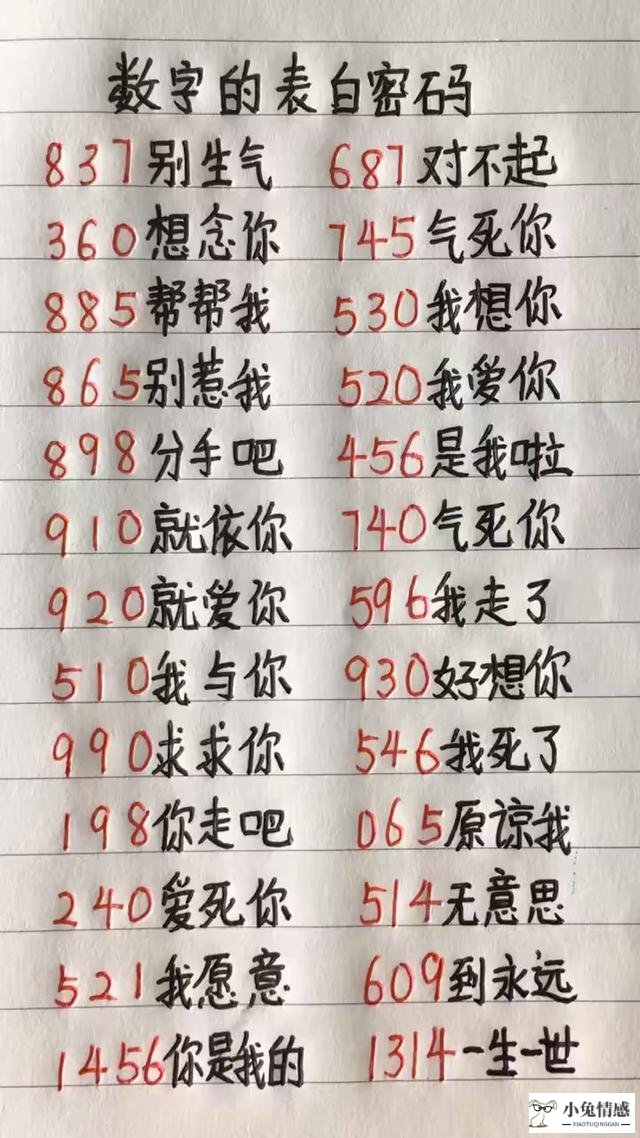 数字的表白密码
837别生气 687对不起
360想念你 745气死你
885帮帮我 530我想你
865别惹我 520我爱你
898分手吧 456是我啦
910就依你 740气死你
920就爱你 596我走了
510我与你 930好想你
990求求你 546我死了
198你走吧 065原谅我
240爱死你 514无意思
521我愿意 609到永远
1456你是我的 1314一生一世
小兔情感
XIAOTUQINGGAN